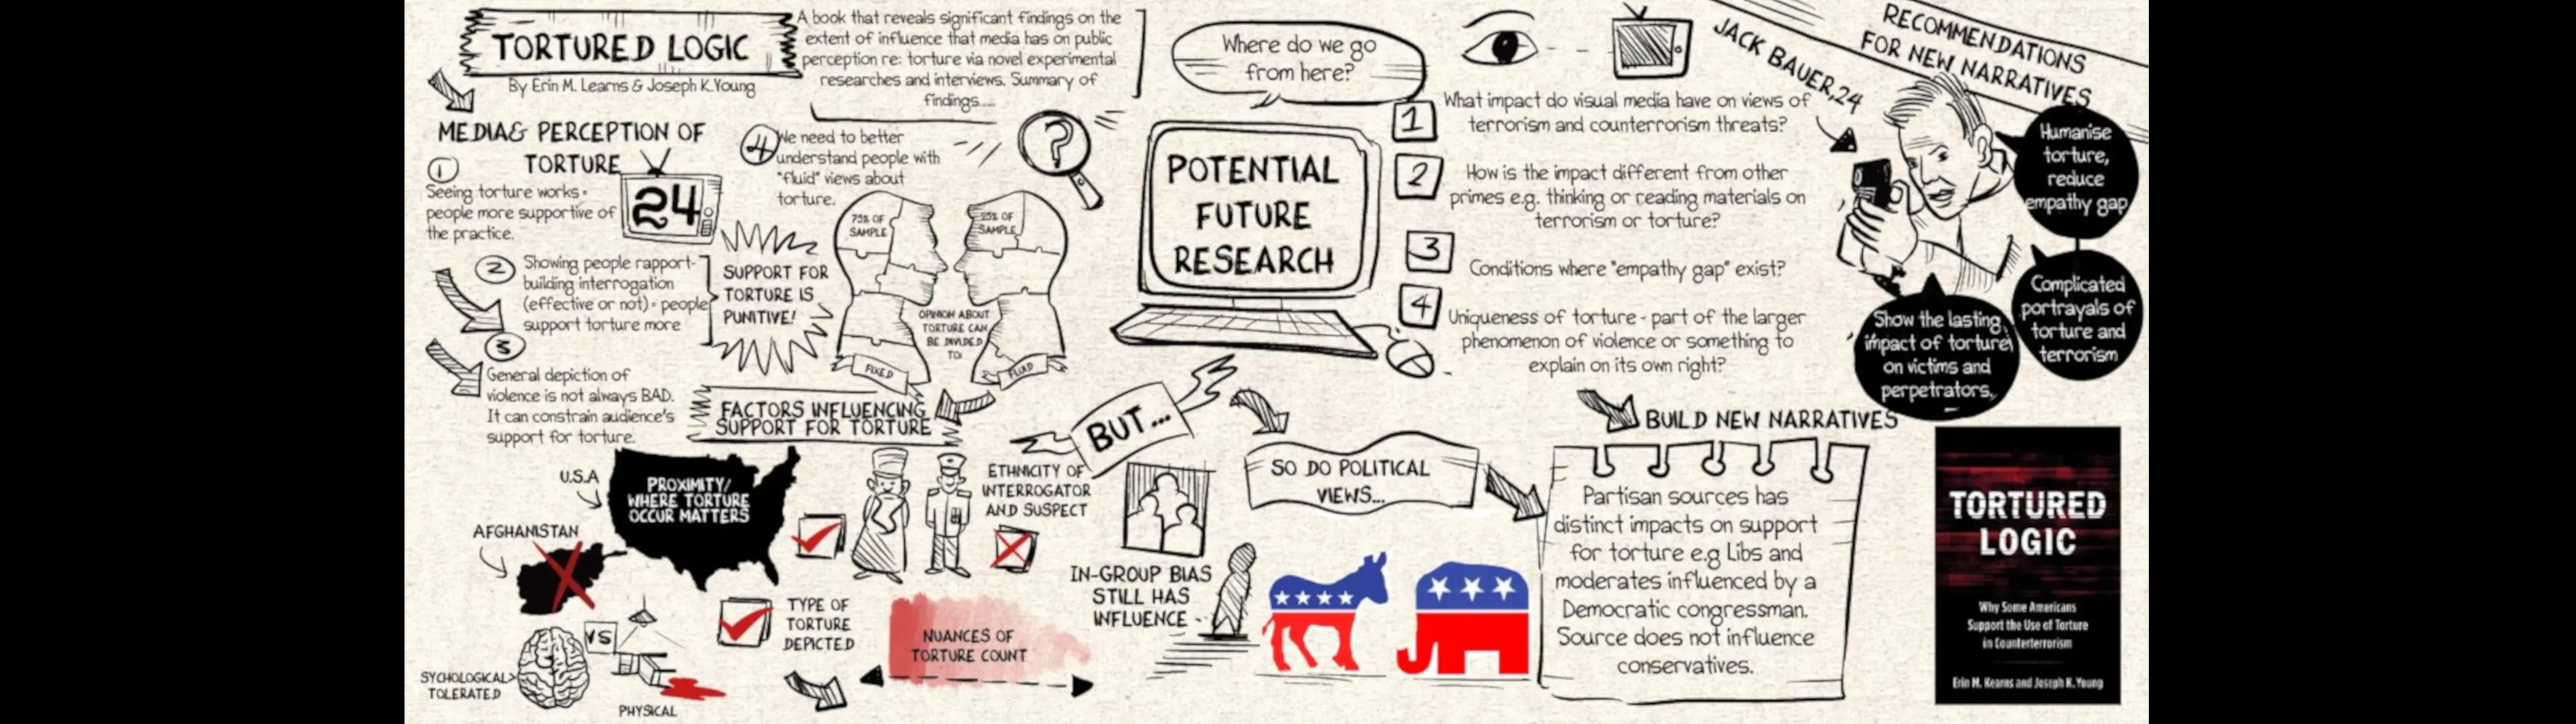 TORTURED LOGIC
By Erin M. Learns & Joseph K.Young
A book that reveals significant findings on the
extent of influence that media has on public
perception re: torture via novel experimental
researches and interviews. Summary of
findings....
MEDIA& PERCEPTION OF
TORTURE
1
Seeing torture works =
people more supportive of
the practice.
24
2
Showing people rapport-
building interrogation
(effective or not) = people
support torture more
SUPPORT FOR
TORTURE IS
PUNITIVE!
3
General depiction of
violence is not always BAD.
It can constrain audience's
support for torture.
4
We need to better
understand people with
"fluid" views about
torture.
?
75% OF
SAMPLE
25% OF
SAMPLE
OPINION ABOUT
TORTURE CAN
BE DIVIDED
TO:
FIXED
FLUID
FACTORS INFLUENCING
SUPPORT FOR TORTURE
U.S.A
PROXIMITY/
WHERE TORTURE
OCCUR MATTERS
AFGHANISTAN
ETHNICITY OF
INTERROGATOR
AND SUSPECT
VS
SYCHOLOGICAL>
TOLERATED
PHYSICAL
TYPE OF
TORTURE
DEPICTED
NUANCES OF
TORTURE COUNT
BUT...
IN-GROUP BIAS
STILL HAS
INFLUENCE
SO DO POLITICAL
VIEWS...
Partisan sources has
distinct impacts on support
for torture e.g Libs and
moderates influenced by a
Democratic congressman.
Source does not influence
conservatives.
Where do we go
from here?
POTENTIAL
FUTURE
RESEARCH
1
What impact do visual media have on views of
terrorism and counterrorism threats?
2
How is the impact different from other
primes e.g. thinking or reading materials on
terrorism or torture?
3
Conditions where "empathy gap" exist?
4
Uniqueness of torture - part of the larger
phenomenon of violence or something to
explain on its own right?
BUILD NEW NARRATIVES
RECOMMENDATIONS
FOR NEW NARRATIVES
JACK BAUER,24
Humanise
torture,
reduce
empathy gap
Complicated
portrayals of
torture and
terrorism
Show the lasting
impact of torture
on victims and
perpetrators.
TORTURED
LOGIC
Why Some Americans
Support the Use of Torture
in Counterterrorism
Erin M. Kearns and Joseph K. Young